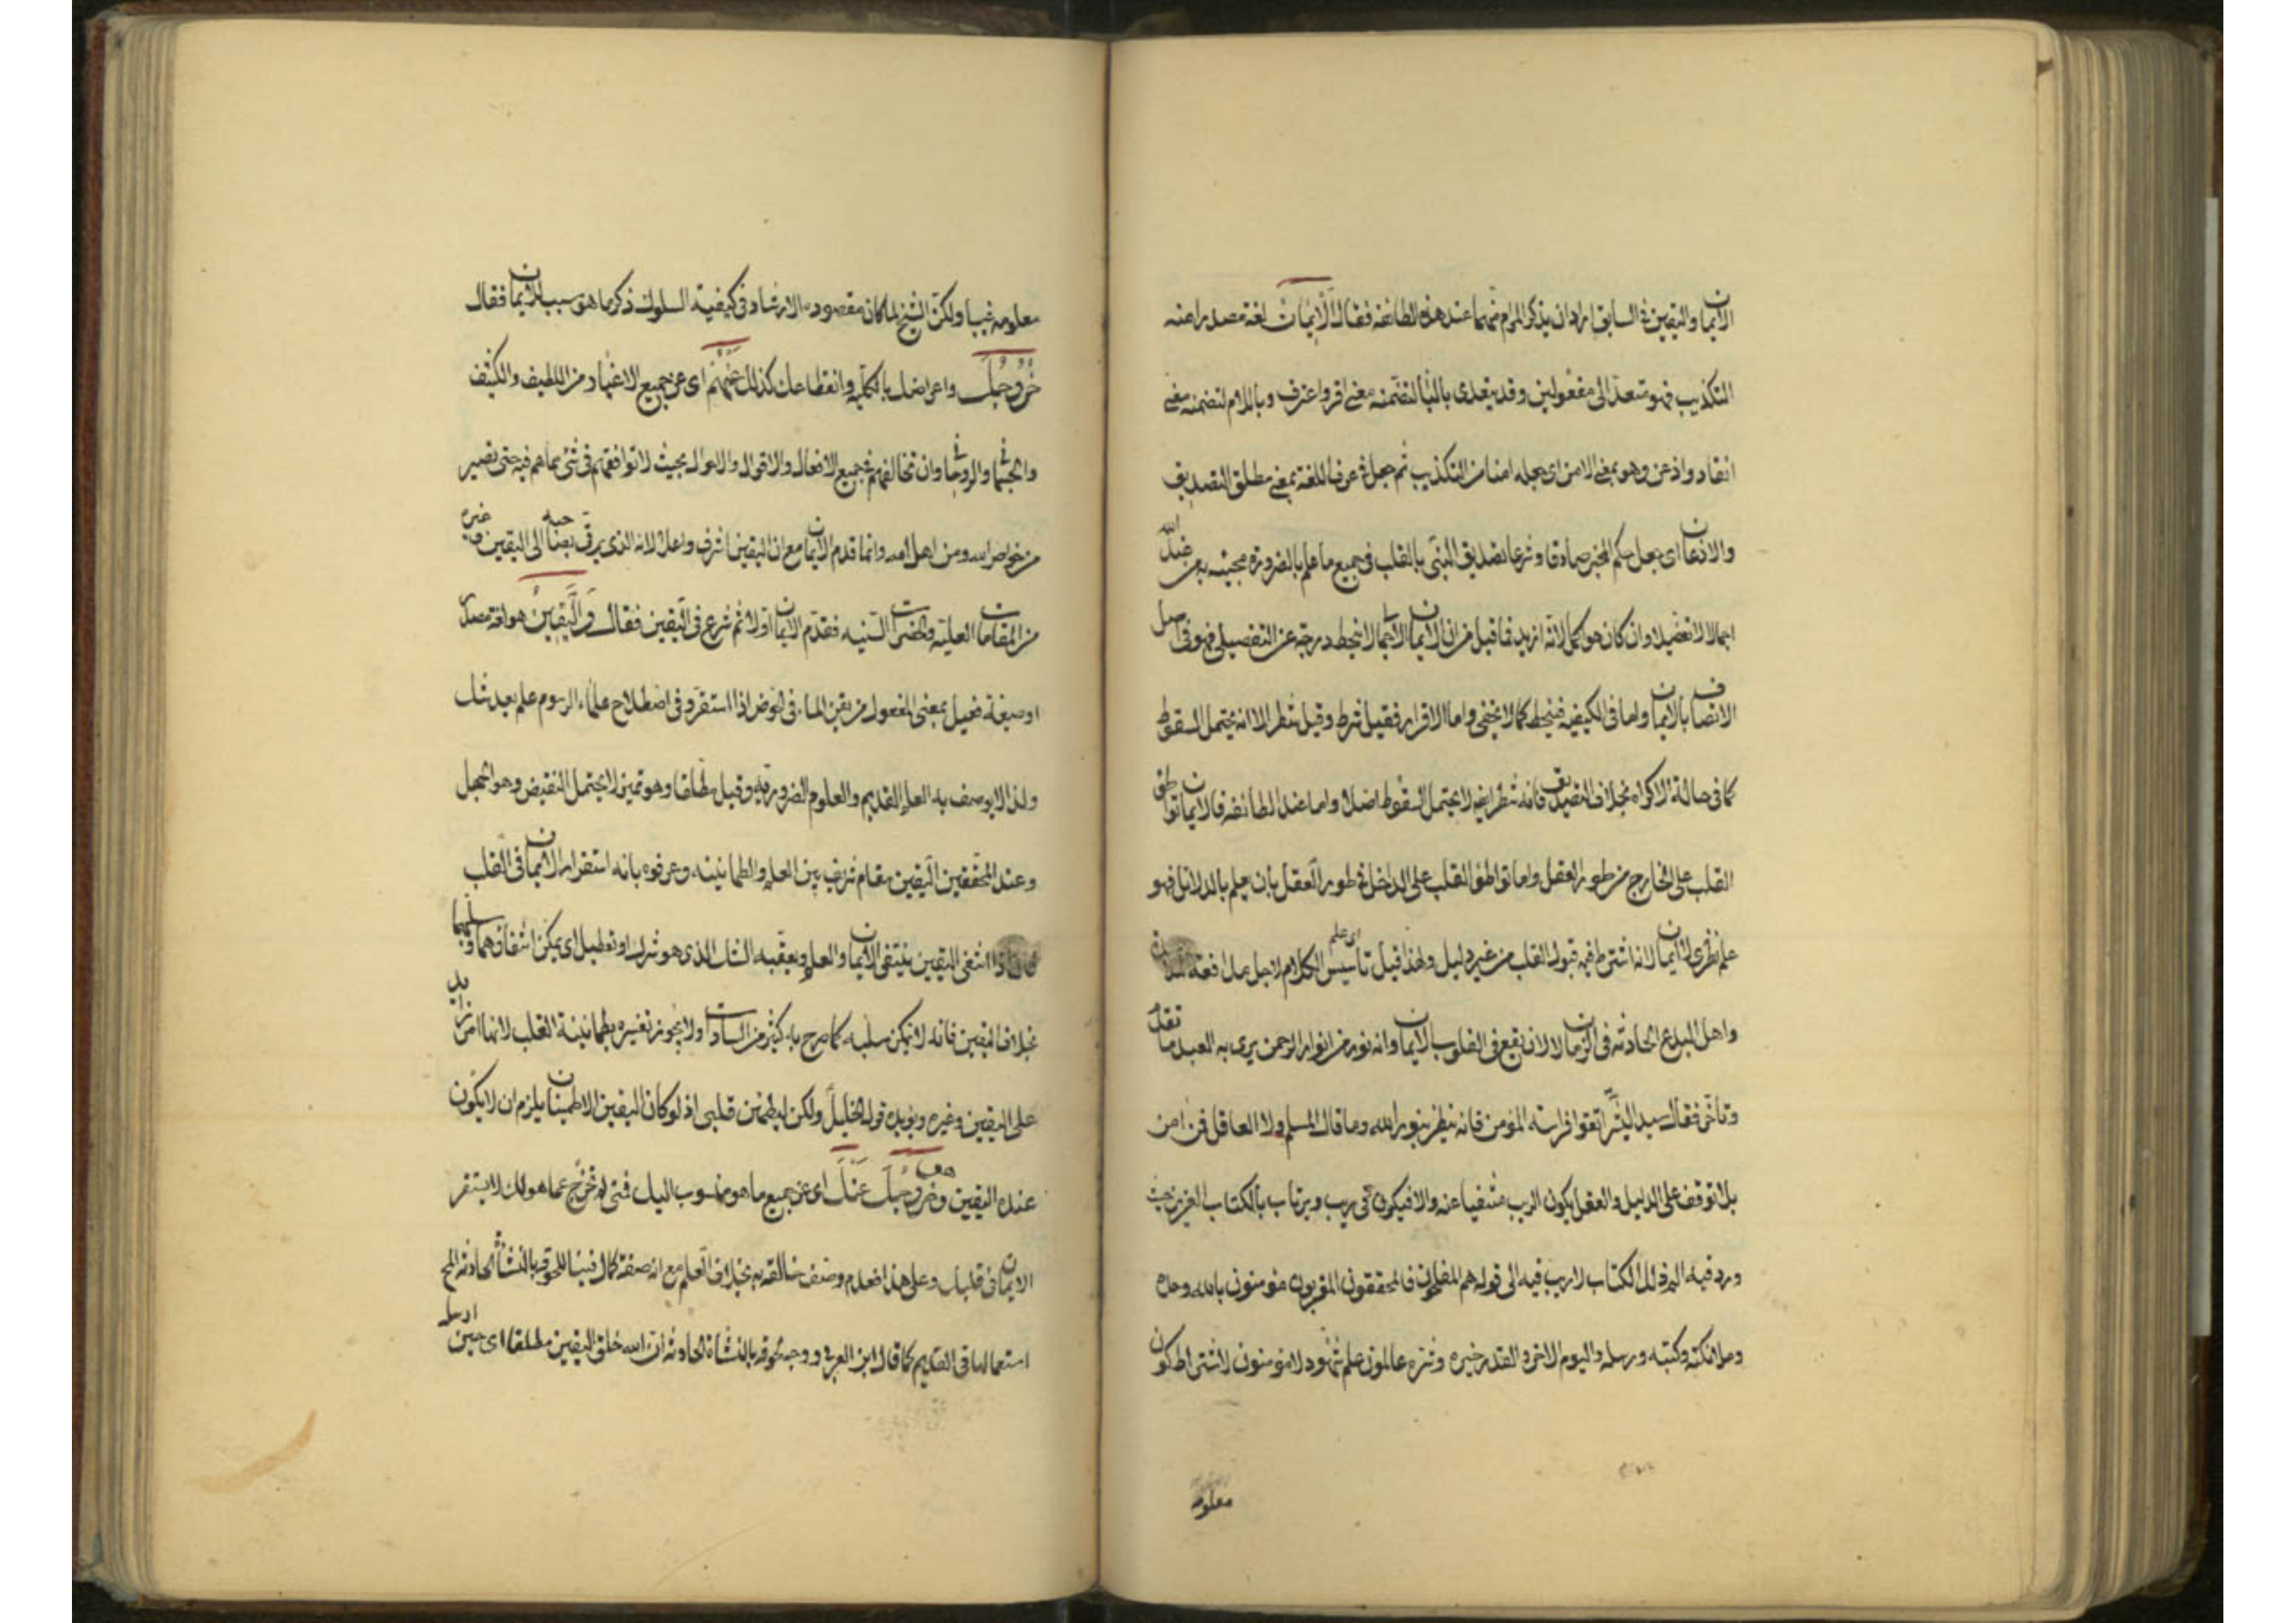 الايمان واليقين في السابق اراد ان يذكر المرام منهما عند هذه الطائفة فقال الْاِيْمَان لغة مصدر امنه
التكذيب فهو متعد الى مفعولين وقد يتعدى بالباء لتضمنه معنى اقر واعترف وباللام لتضمنه معنى
انقاد واذعن وهو بمعنى الامن اى جعله امنا من التكذيب ثم جعل فى عرف اللغة بمعنى مطلق التصديق
والاذعان اى بجعل حكم المخبر صادقا وشرعا تصديق النبى بالقلب فى جميع ما علم بالضرورة مجيئه به من عند الله
اجمالا لا تفصيلا وان كان هو كمالا لانه ازيد فما قيل من ان الايمان الاجمالى لا ينحط درجة عن التفصيلى فهو فى اصل
الاتصاف بالايمان واما فى الكيفية فينحط كما لا يخفى واما الاقرار فقيل شرط وقيل شطر الا انه يحتمل السقوط
كما فى حالة الاكراه بخلاف التصديق فانه شطر ايضا لا يحتمل السقوط اصلا واما عند الطائفة فالايمان تواطئ
القلب على الخارج من طور العقل واما تواطئ القلب على الداخل فى طور العقل بان يعلم بالدلائل فهو
علم نظرى لا ايمان لانه اشترط فيه قبول القلب من غير دليل ولهذا قيل تاسيس اى علم الكلام لاجل مدافعة
واهل البدع الحادثة فى الزمان لا لان يقع فى القلوب الايمان وانه نور من انوار الرحمن يرى به العبد ما تقدم
وتأخر فقال سيد البشر اتقوا فراسة المؤمن فانه ينظر بنور الله وما قال المسلم ولا العاقل فمن امن
بلا توقف على الدليل والعقل يكون الريب منتفيا عنه والا فيكون فى ريب ويرتاب بالكتاب العزيز حيث
ورد فيه الم ذلك الكتاب لا ريب فيه الى قوله هم المفلحون فالمحققون المقربون مؤمنون بالله وحده
وملائكته وكتبه ورسله واليوم الاخر والقدر خيره وشره عالمون علم شهود لا مؤمنون لاشتراط كون
معلومه
معلومه غيبا ولكن الشيخ لما كان مقصوده الارشاد فى كيفية السلوك ذكر ما هو سبب للايمان فقال
خُرُوجُكَ واعراضك بالكلية وانقطاعك كذلك عَنْهُمْ اى عن جميع الاغيار من اللطيف والكثيف
والجثمانى والروحانى وان تخالفهم فى جميع الافعال والاقوال والاحوال بحيث لا توافقهم فى شئ مما هم فيه حتى تصير
من خواص الله ومن اهل الله وانما قدم الايمان مع ان اليقين اشرف واعلا لانه الذى يرقى صاحبه الى اليقين وغيره
من المقامات العلية والحضرات السنية فقدم الايمان اولا ثم شرع فى اليقين فقال وَالْيَقِيْنُ هو لغة مصدر
او صيغة فعيل بمعنى المفعول من يقن الماء فى الحوض اذا استقر وفى اصطلاح علماء الرسوم علم بعد شك
ولذا لا يوصف به العلم القديم والعلوم الضرورية وقيل مطلقا وهو تميز لا يحتمل النقيض وهو الجهل
وعند المحققين اليقين مقام شريف بين العلم والطمانينه وعرفوه بانه استقرار الايمان فى القلب
اذا انتفى اليقين ينتفى الايمان والعلم ويعقبه الشك الذى هو شرك او تعطيل اى يمكن انتفاؤهما وسلبهما
بخلاف اليقين فانه لا يمكن سلبه كما صرح به كثير من السادات ولا يجوز تفسيره بطمانينة القلب لانها امر زايد
على اليقين وغيره ويؤيده قول الخليل ولكن ليطمئن قلبى اذ لو كان اليقين الاطمينان يلزم ان لا يكون
عنده اليقين وهو خُرُوجُكَ عَنْكَ اى عن جميع ما هو منسوب اليك فمتى لم تخرج عما هو لك لا يستقر
الايمان فى قلبك وعلى هذا فعدم وصف خالقه به بخلاف العلم مع انه صفة كمال فينا للحوقه بالنشأة الحادثة
استعمالها فى القديم كما قال ابن العربى ووجه لحوقه بالنشأة الحادثة ان الله خلق اليقين مطلقا اى حين ارسله